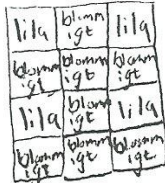 lila blommigt lila
blommigt blommigt blommigt
lila blommigt lila
blommigt blommigt blommigt